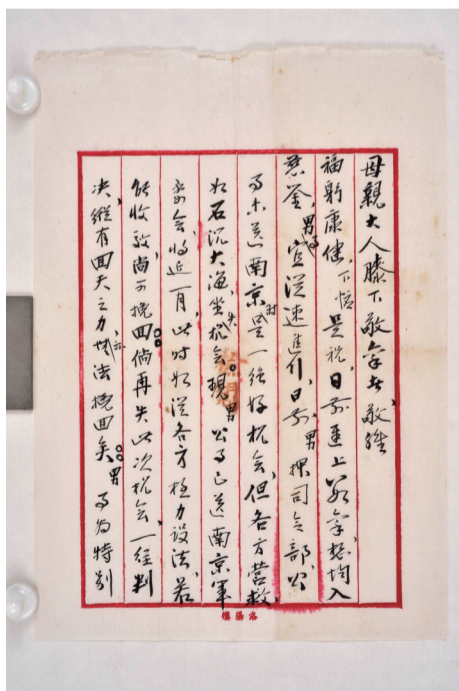 母親大人膝下敬稟者、敬維
福躬康健、下忱是祝、日前連上數稟、想均入
慈鑒、男事宜從速進行、日前男押司令部、公
事未送南京時是一絕好機會、但各方營救、
如石沉大海、坐失機會。現男公事已送南京軍
委會將近一月、此時如從各方極力設法、若
能收效、尚可挽回、倘再失此次機會、一經判
決、縱有回天之力、亦無法挽回矣。男事为特别
洛陽樓